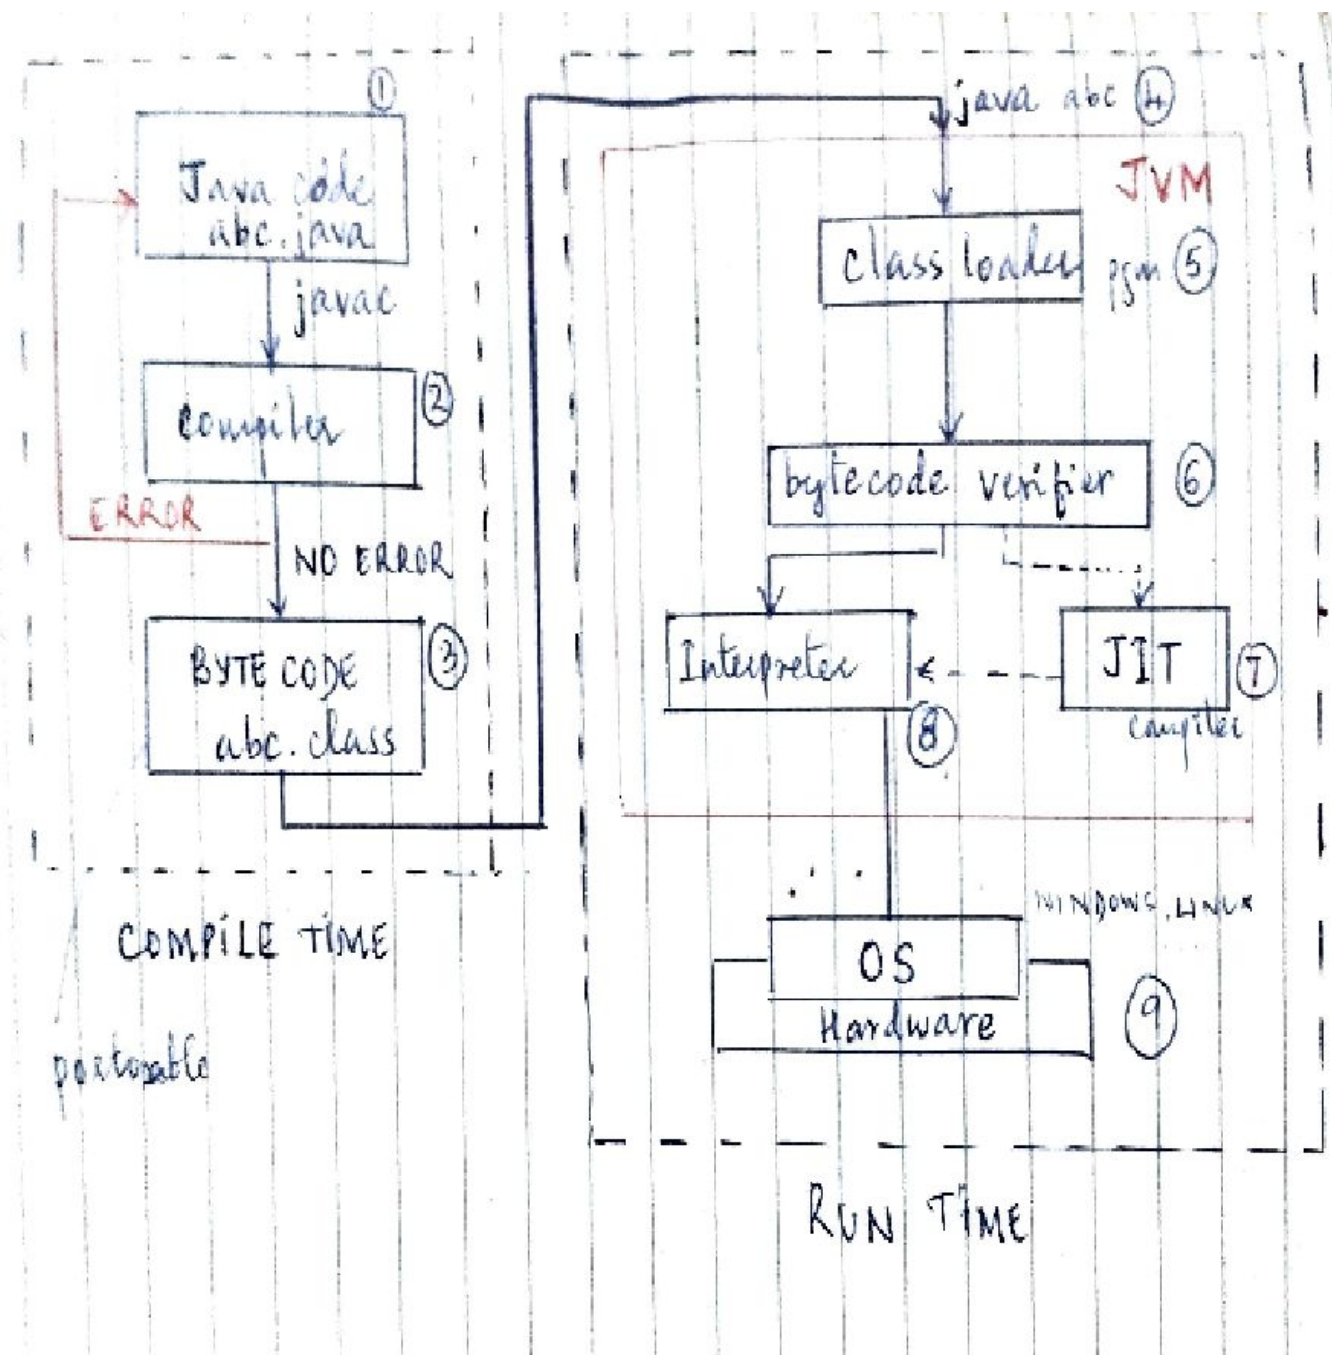 1
Java code
abc.java
javac
2
Compiler
ERROR
NO ERROR
3
BYTE CODE
abc.class
COMPILE TIME
java abc 4
JVM
class loader pgm 5
bytecode verifier 6
Interpreter
JIT 7
compiler
8
WINDOWS, LINUX
OS
Hardware
9
RUN TIME